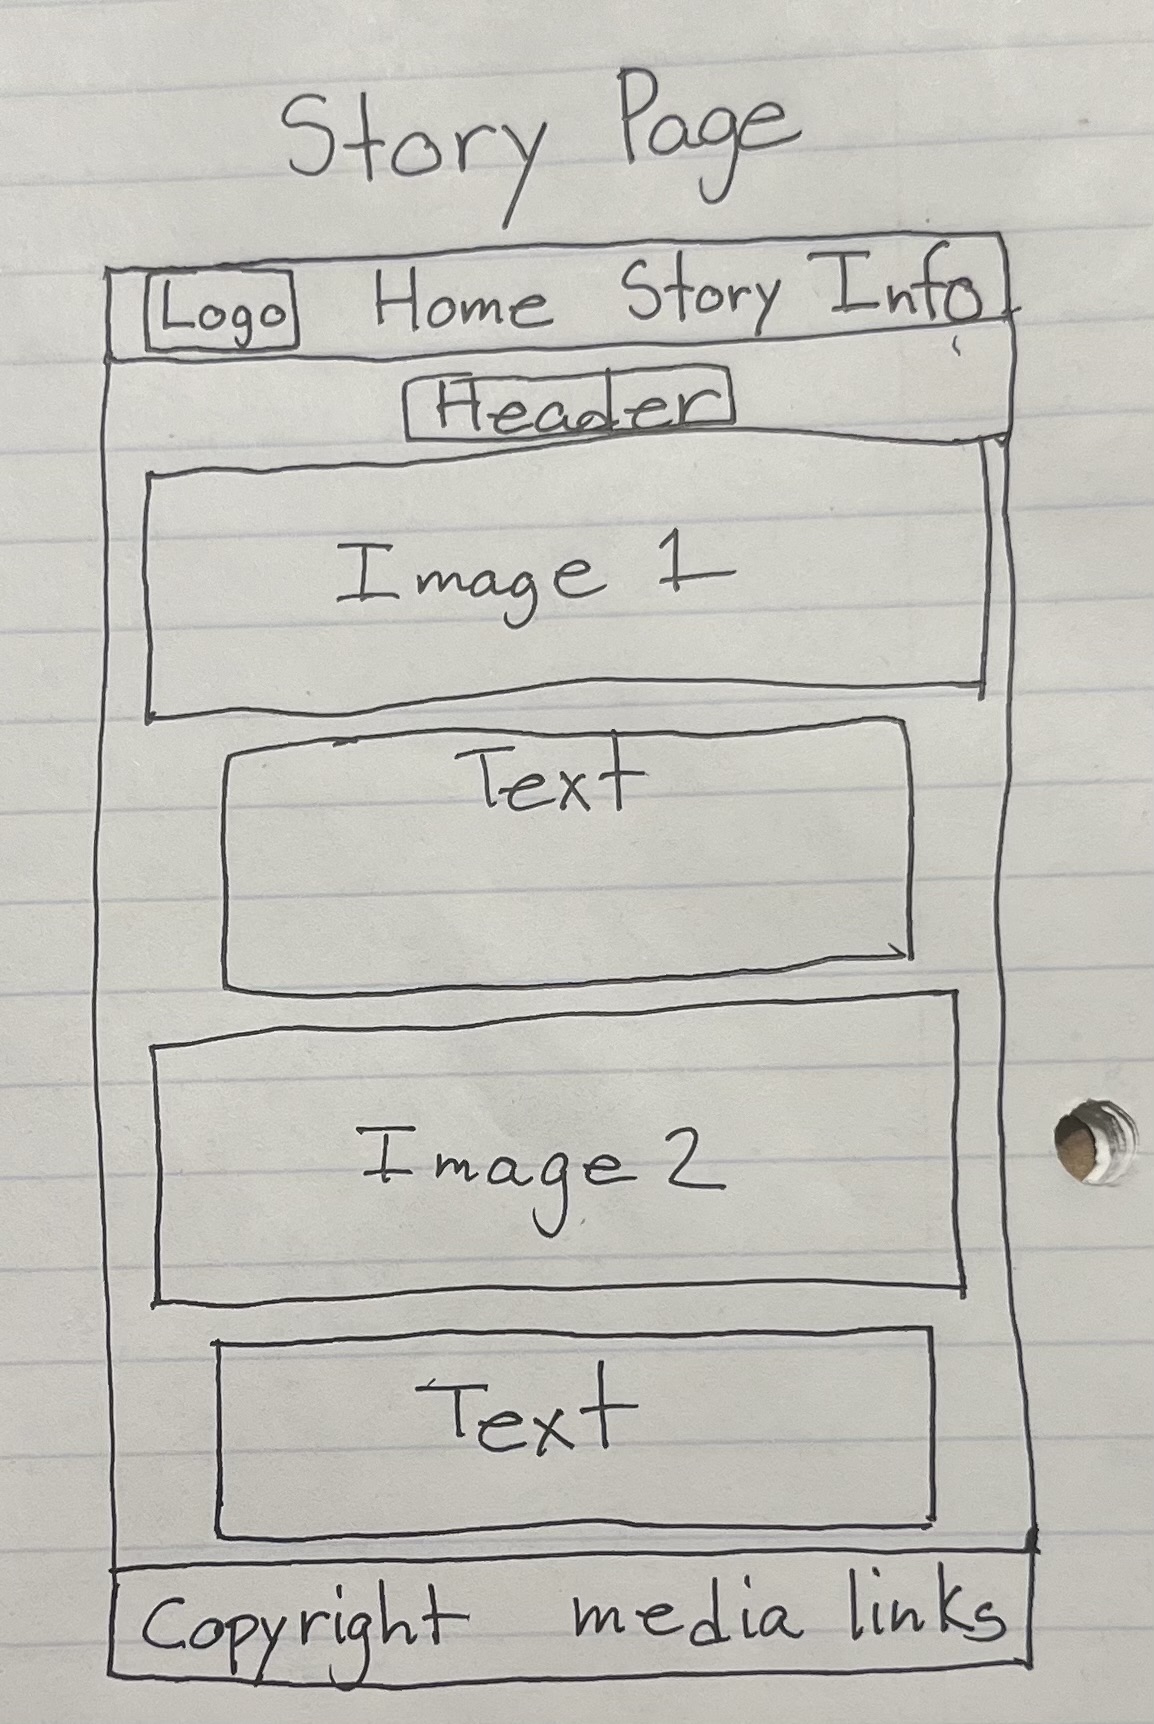 Story Page
Logo Home Story Info
Header
Image 1
Text
Image 2
Text
Copyright media links